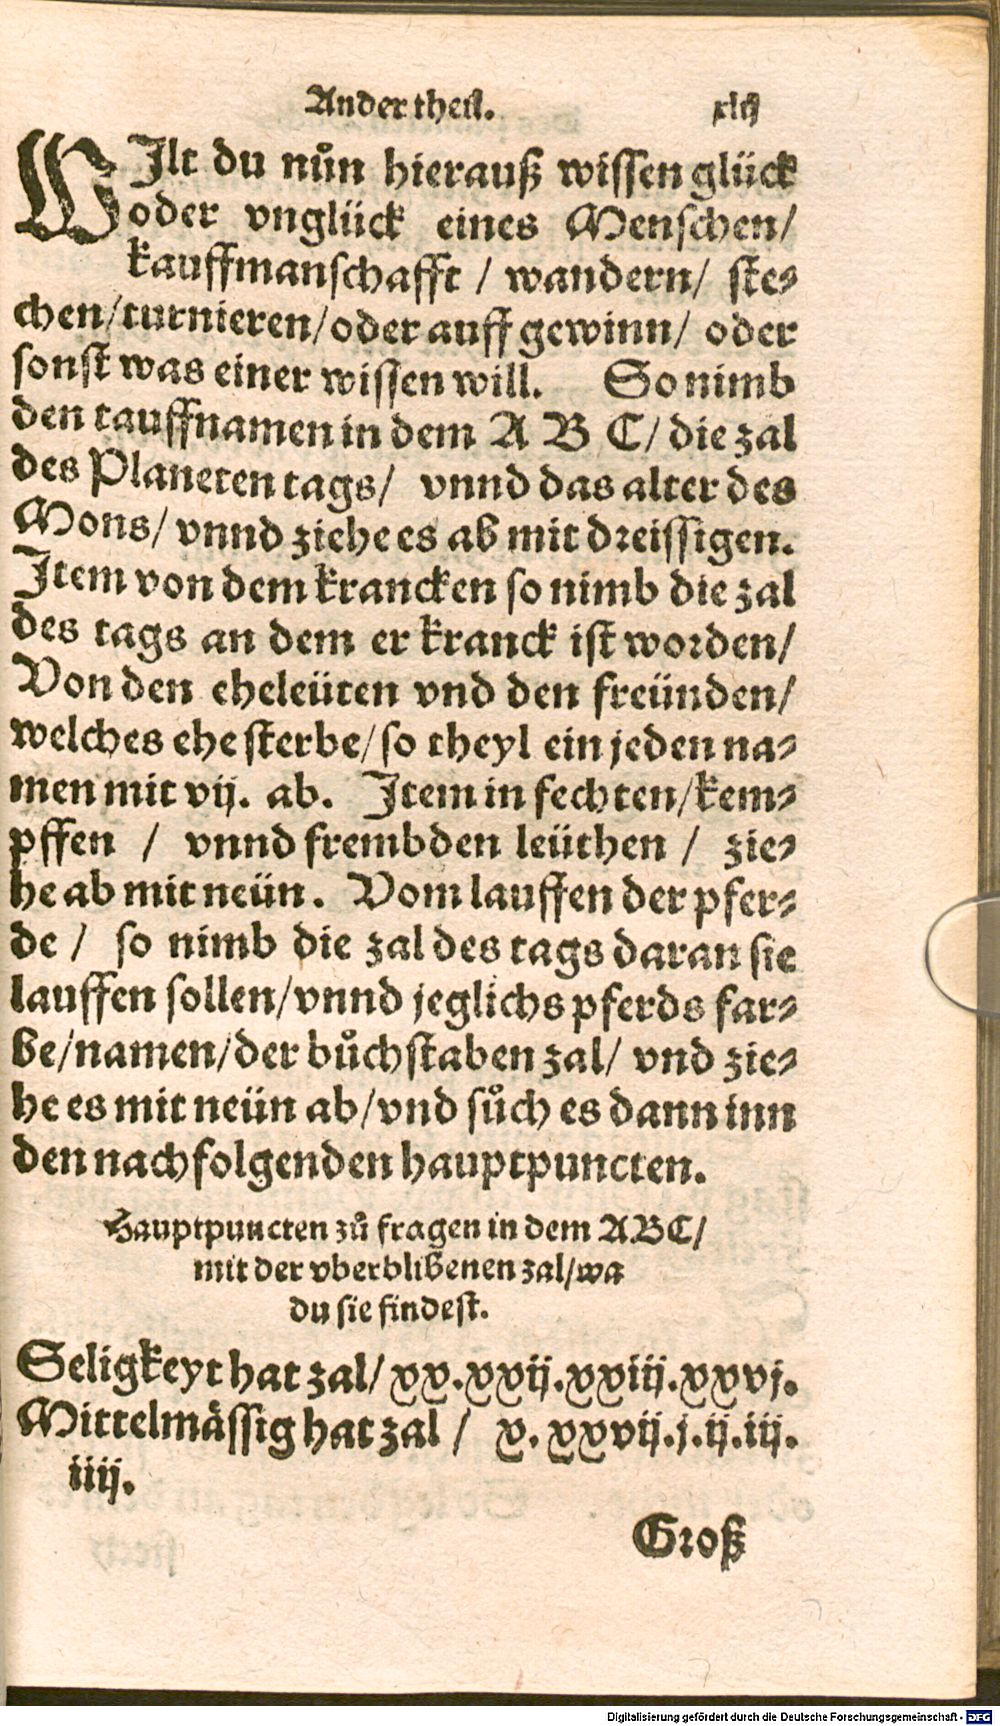 Ander theil. xlij
WIlt du nůn hierauß wissen glück
oder vnglück eines Menschen/
kauffmanschafft / wandern/ ste⸗
chen/turnieren/oder auff gewinn/ oder
sonst was einer wissen will. So nimb
den tauffnamen in dem A B C/ die zal
des Planeten tags/ vnnd das alter des
Mons/ vnnd ziehe es ab mit dreissigen.
Item von dem krancken so nimb die zal
des tags an dem er kranck ist worden/
Von den eheleüten vnd den freünden/
welches ehe sterbe/ so theyl ein jeden na⸗
men mit vij. ab. Item in fechten/kem⸗
pffen / vnnd frembden leüthen / zie⸗
he ab mit neün. Vom lauffen der pfer⸗
de / so nimb die zal des tags daran sie
lauffen sollen/vnnd jeglichs pferds far⸗
be/namen/der bůchstaben zal/ vnd zie⸗
he es mit neün ab/vnd sůch es dann inn
den nachfolgenden hauptpuncten.
Hauptpuncten zů fragen in dem ABC/
mit der vberblibenen zal/wa
du sie findest.
Seligkeyt hat zal/ xx.xxij.xxiij.xxvj.
Mittelmässig hat zal / x. xxvij.j.ij.iij.
iiij.
Groß
Digitalisierung gefördert durch die Deutsche Forschungsgemeinschaft - DFG